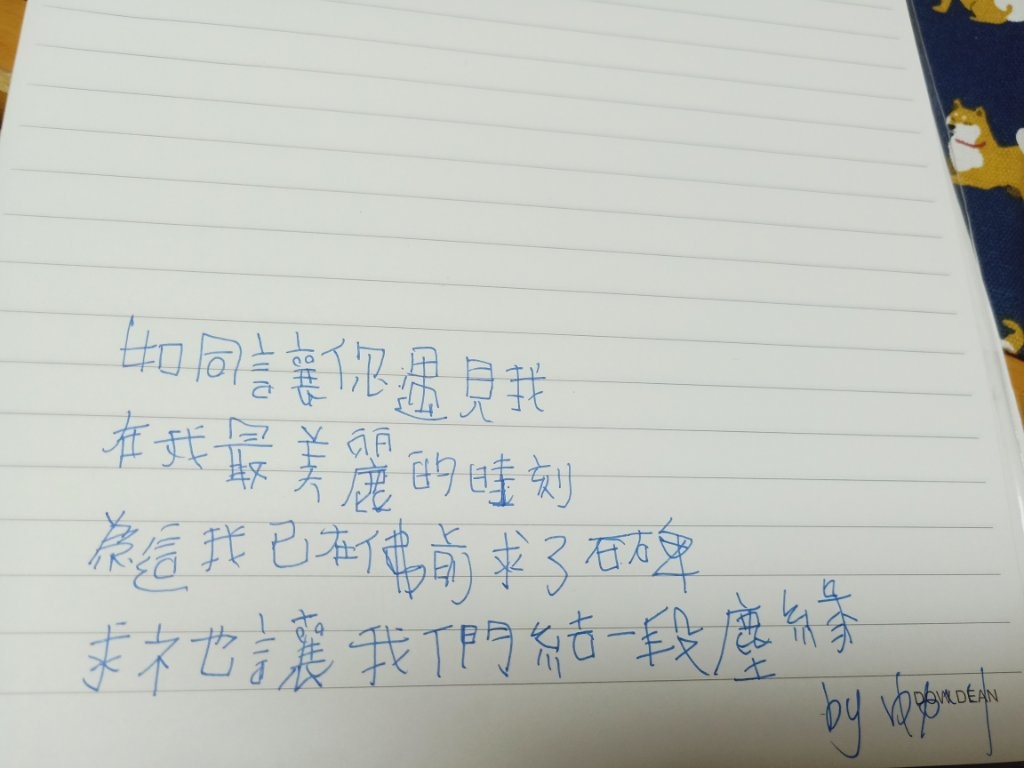 如同讓你遇見我
在我最美麗的時刻
為這我已在佛前求了石碑
求祂讓我們結一段塵緣
by
DOWLDEAN